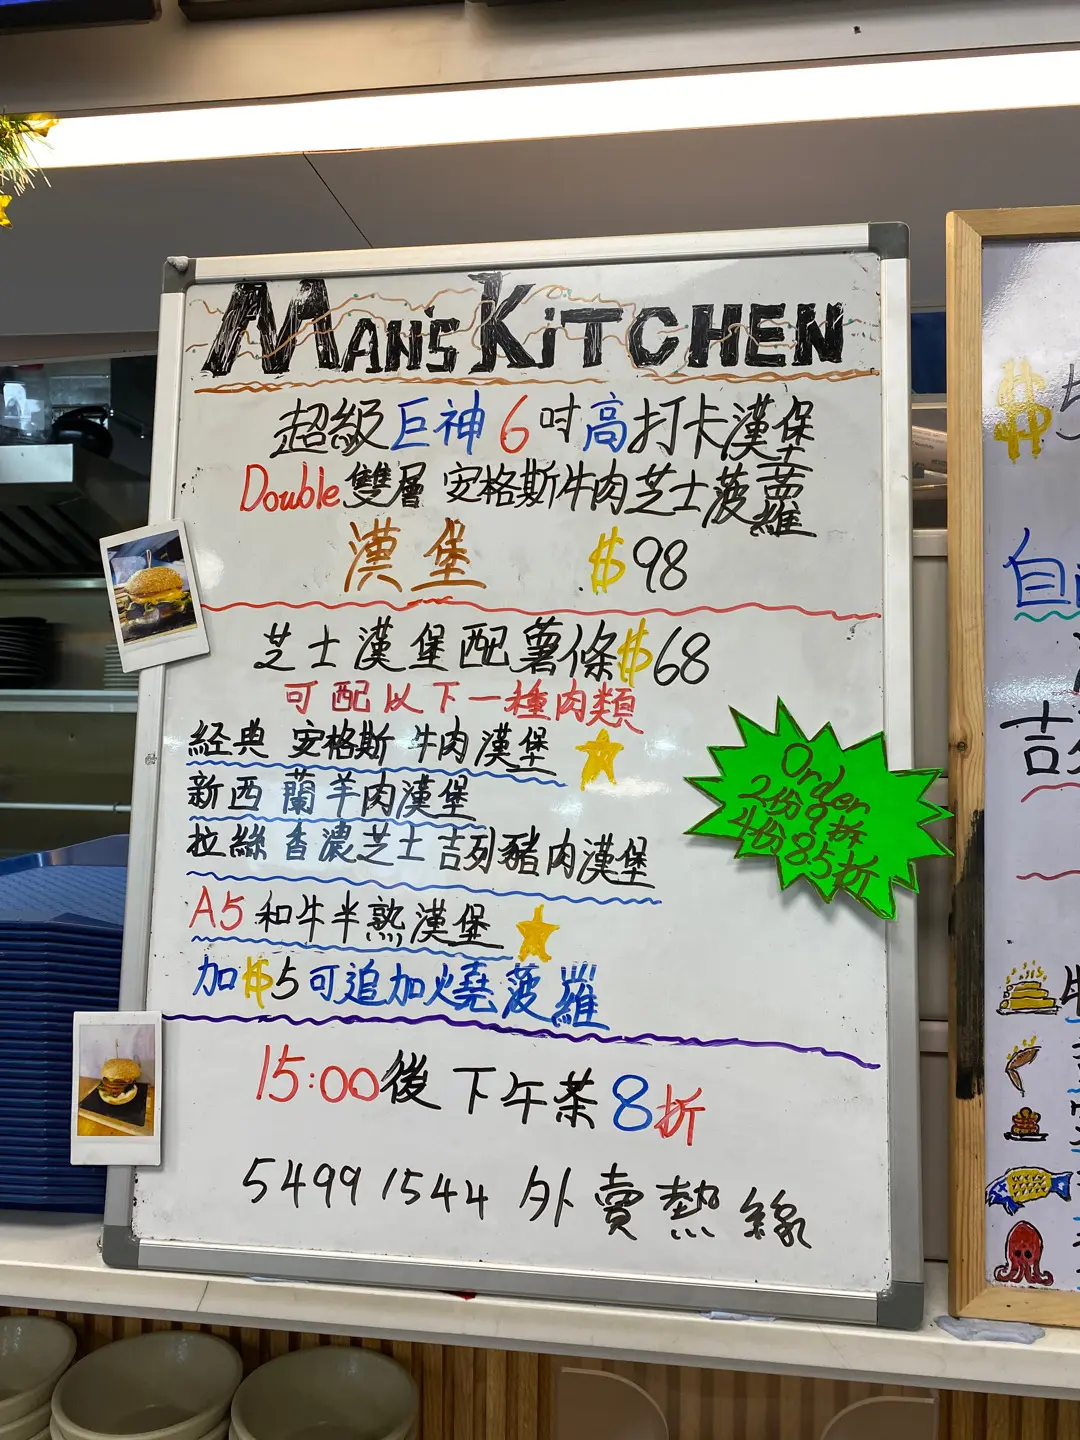 MAN'S KiTCHEN
超級巨神6吋高打卡漢堡
Double雙層 安格斯牛肉芝士菠蘿
漢堡 $98
芝士漢堡配薯條$68
可配以下一種肉類
經典 安格斯 牛肉漢堡
新西蘭羊肉漢堡
拉絲香濃芝士吉列豬肉漢堡
A5和牛半熟漢堡
加$5可追加燒菠蘿
Order
2份9折
4份85折
15:00後下午茶8折
54991544 外賣熱線
$5
自
吉列